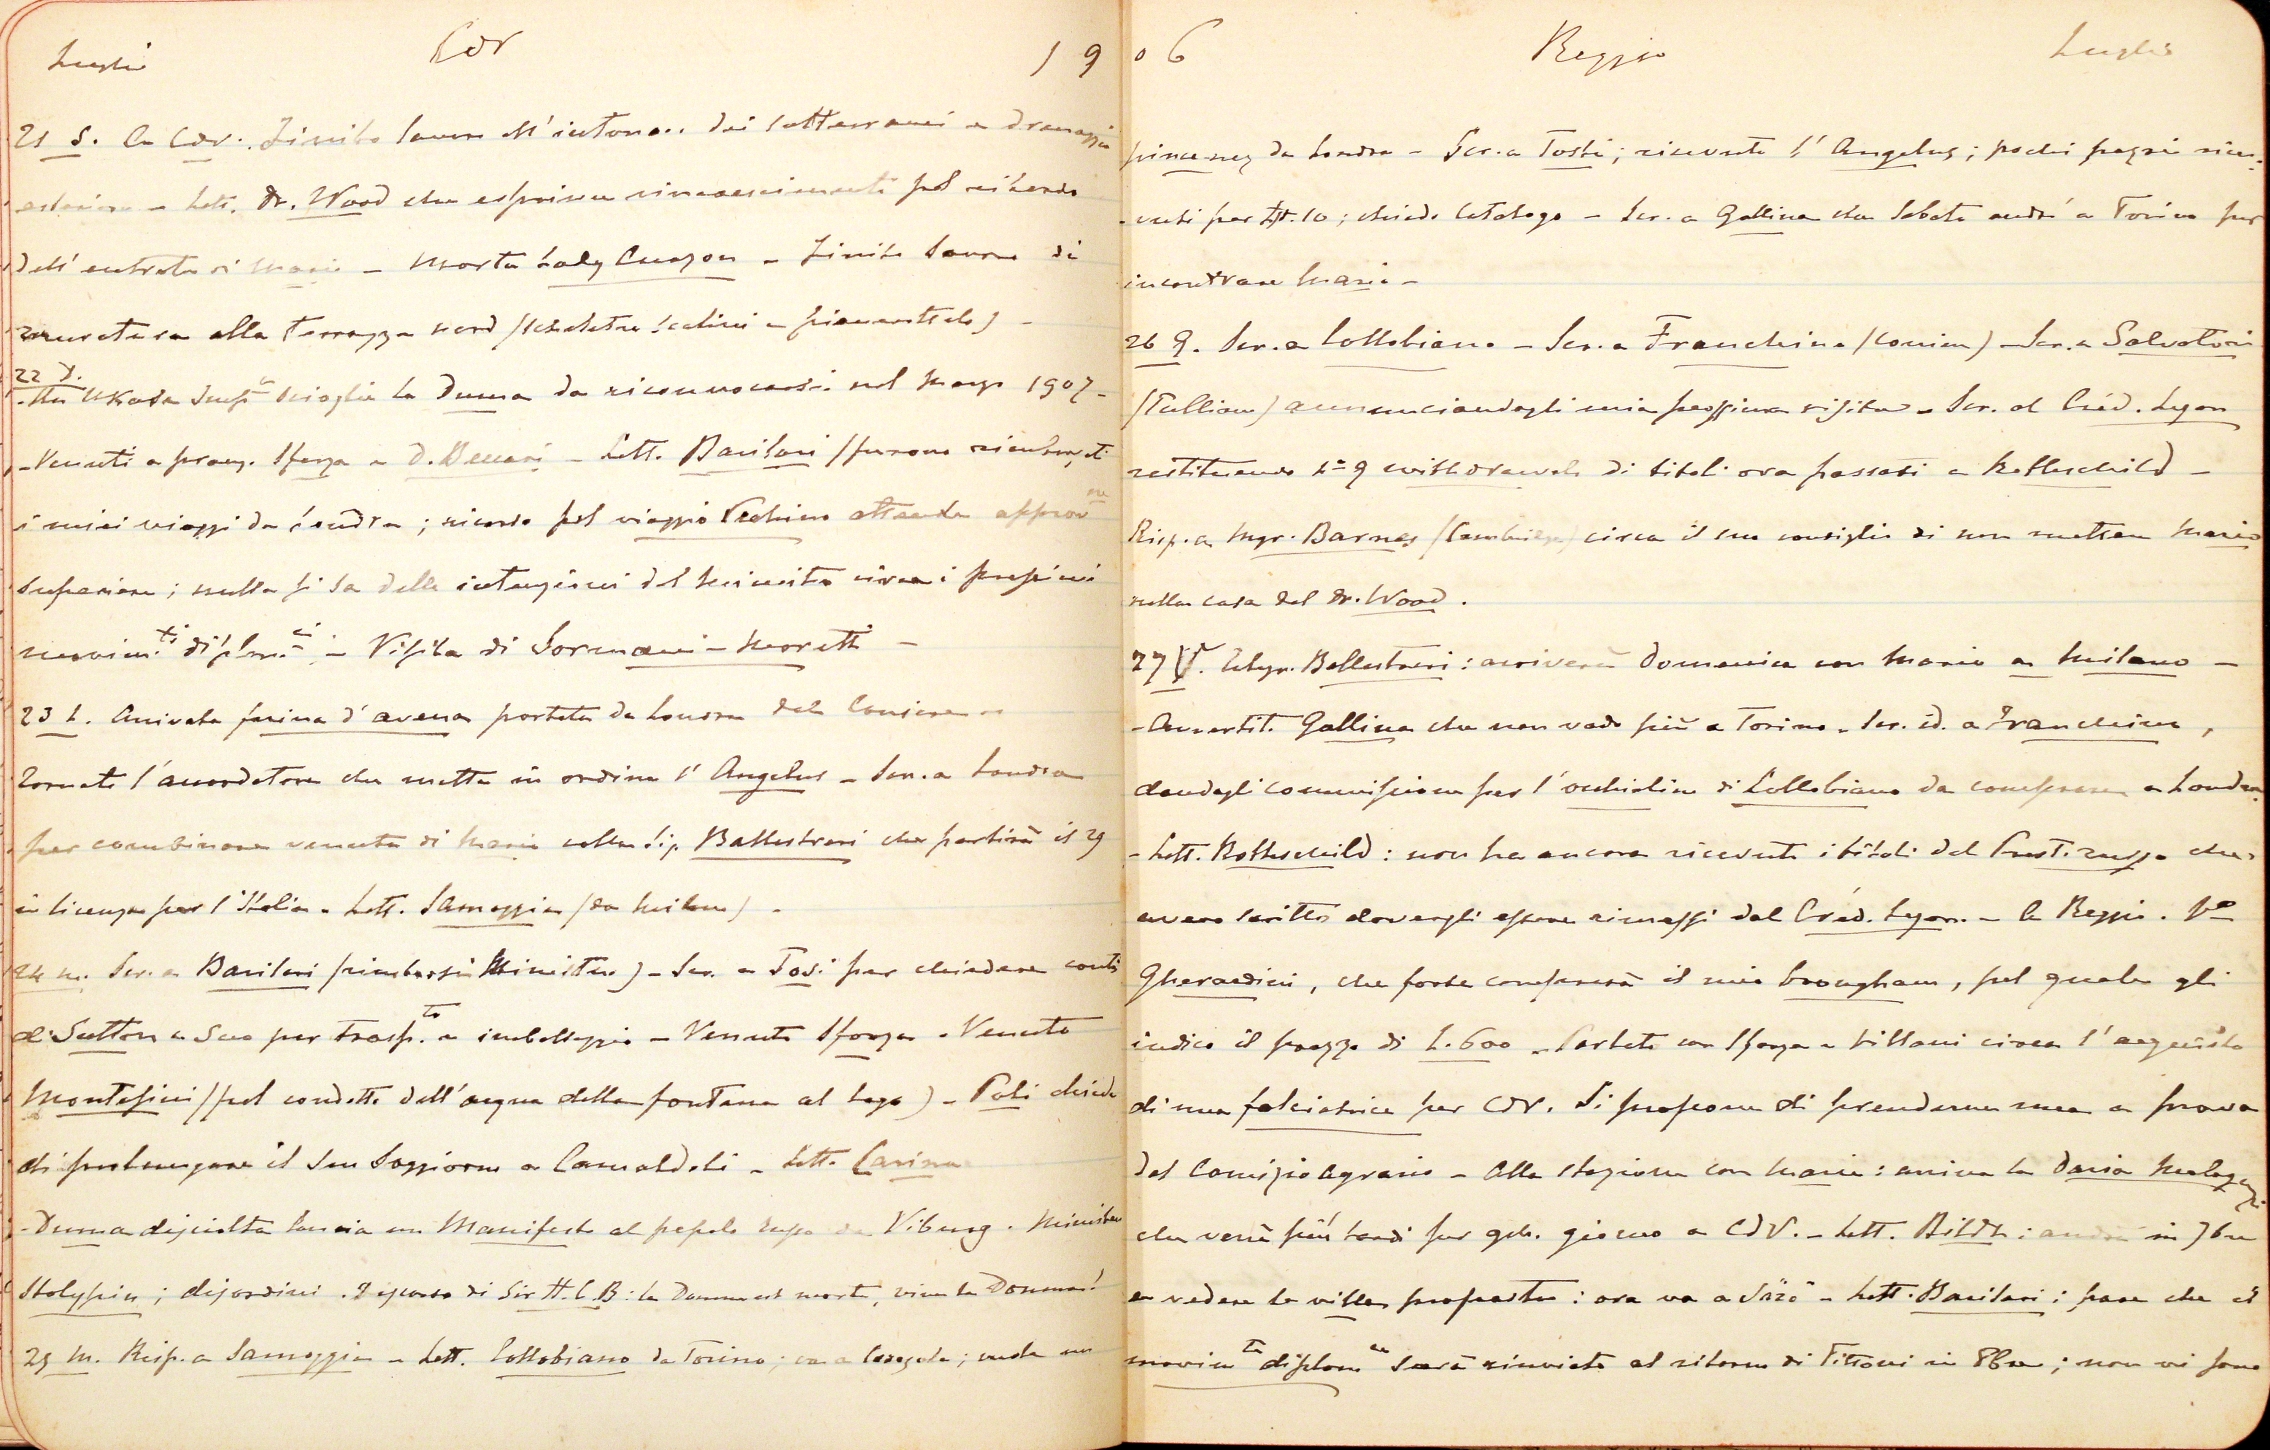 Luglio CdV 19
21 S. A CdV. Finito lavoro all'intonaco dei sotterranei e drenaggio
esteriore - Lett. Dr. Wood che esprime rincrescimento pel ritardo
dell'entrata di Mario - Morta Lady Curzon - Finito lavoro di
muratura alla Terrazza nord (scheletro scalini e pianerottolo) -
22 D.
Un Ukase scioglie la Duma da riconvocarsi nel Marzo 1907 -
- Venuti a pranz. Sforza e D. - Lett. Basilari (furono rimborsati
i miei viaggi da Londra; ricorso pel viaggio Pechino attende approv.ne
superiore; nulla si sa delle intenzioni del Ministro circa i prossimi
movim.ti diplom.ci - Visita di Sormani-Moretti -
23 L. Arrivata farina d'avena portata da Londra dal Corriere -
Tornato l'accordatore che mette in ordine l'Angelus - Scr. a Londra
per combinare venuta di Mario colla Sig. Ballestreri che partirà il 29
in licenza per l'Italia - Lett. Samoggia (da Milano) -
24 M. Scr. a Basilari (rimborsi Ministero) - Scr. a Tosi per chiedere conti
di Sutton e Suo per trasp.to e imballaggio - Venuto Sforza - Venuto
Montesini (pel condotto dell'acqua della fontana al lago) - Poli chiede
di prolungare il suo soggiorno a Camaldoli - Lett. Carina
- Duma disciolta lancia un Manifesto al popolo russo da Viburg. Ministero
Stolypin; disordini. Discorso di Sir H.C.B: la Douma est morte, vive la Douma!
25 M. Risp. a Samoggia - Lett. Collobiano da Torino; va a; vuole un
06 Reggio Luglio
pince-nez da Londra - Scr. a Tosti; ricevuto l'Angelus; pochi pezzi rice-
vuti per Lst. 10; chiedo Catalogo - Scr. a Gallina che Sabato andrò a Torino per
incontrare Mario -
26 G. Scr. a Collobiano - Scr. a Franchino (Corriere) - Scr. a Salvatori
(Tullian) annunciandogli mia prossima visita - Scr. al Créd. Lyon
restituendo No 9 withdrawals di titoli ora passati a Rothschild -
Risp. a Mgr. Barnes (Cambridge) circa il suo consiglio di non mettere Mario
nella casa del Dr. Wood.
27 V. Telegr. Ballestreri: arriverà Domenica con Mario a Milano -
- Avvertit. Gallina che non vado più a Torino - Scr. id. a Franchino,
dandogli commissione per l'occhialino di Collobiano da comprare a Londra
- Lett. Rothschild: non ha ancora ricevuto i titoli del Prest. russo che
aveva scritto dovergli essere rimessi dal Créd. Lyon. - A Reggio.
Gherardini, che forse comprerà il mio brougham, pel quale gli
indico il prezzo di L. 600 - Parlato con Sforza e Villani circa l'acquisto
di una falciatrice per CdV. Si propone di prenderne una a prova
dal Comizio Agrario - Alla stazione con Maria: arriva la Daria Malaguzzi
che verrà più tardi per qch. giorno a CdV. - Lett. Bildt: andrà in 7bre
a vedere la villa proposta: ora va a Särö - Lett. Basilari: pare che il
movim.to diplom.co sarà rinviato al ritorno di Tittoni in 8bre; non vi sono